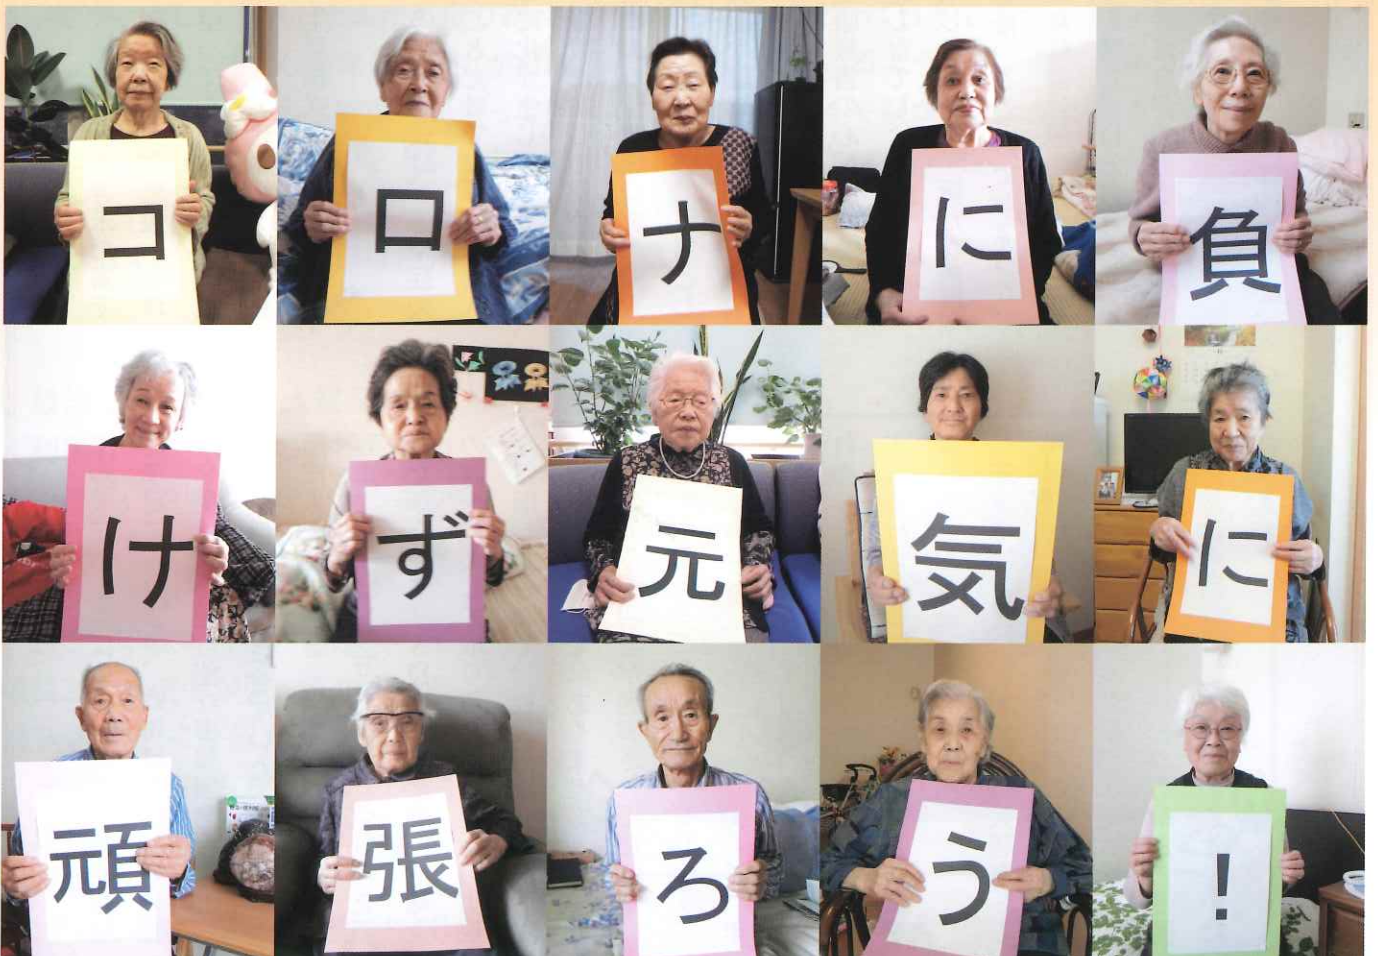 コロナに負
けず元気に
頑張ろう!